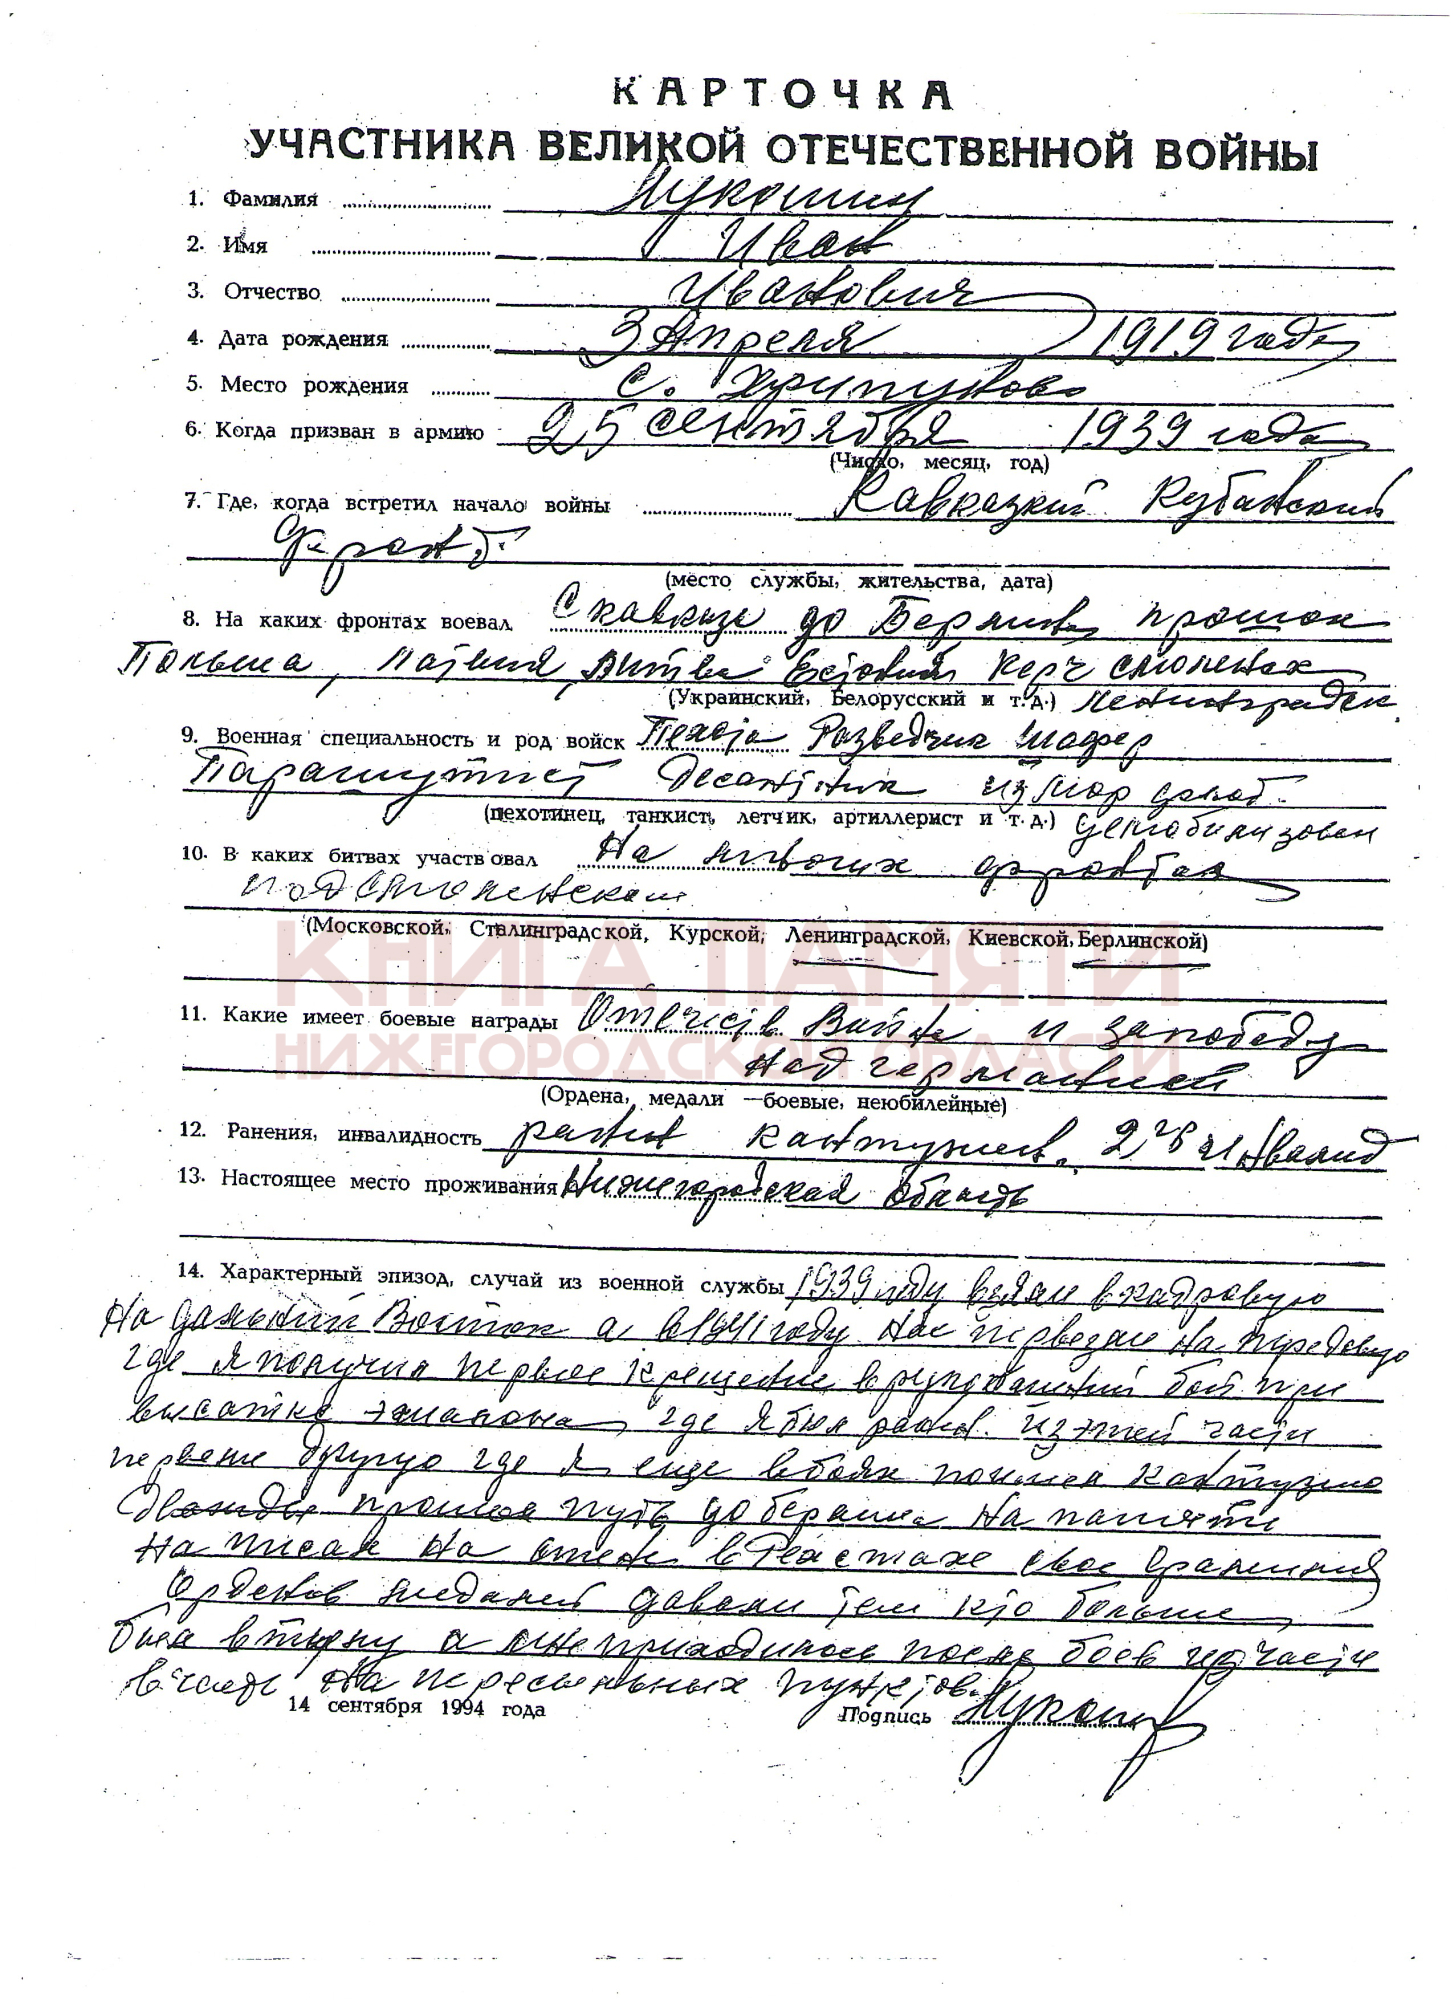 КАРТОЧКА
УЧАСТНИКА ВЕЛИКОЙ ОТЕЧЕСТВЕННОЙ ВОЙНЫ
1. Фамилия Лукошин
2. Имя Иван
3. Отчество Иванович
4. Дата рождения 3 Апреля 1919 года
5. Место рождения с. Хрипуново
6. Когда призван в армию 25 сентября 1939 года
(Число, месяц, год)
7. Где, когда встретил начало войны Кавказкий Кубанский
фронт
(место службы, жительства, дата)
8. На каких фронтах воевал С кавказа до Берлина прошол
Польша, Латвия, Литва Естония Керч смоленск
(Украинский, Белорусский и т. д.) Ленинградск
9. Военная специальность и род войск Пехота Разведчик Шофер
Парашутист Десантник из мор
(пехотинец, танкист, летчик, артиллерист и т. д.) демобилизован
10. В каких битвах участвовал На многих фронтах
под смоленском
(Московской, Сталинградской, Курской, Ленинградской, Киевской, Берлинской)
КНИГА ПАМЯТИ
НИЖЕГОРОДСКОЙ ОБЛАСТИ
11. Какие имеет боевые награды Отечеств Война и запобеду
над германией
(Ордена, медали —боевые, неюбилейные)
12. Ранения, инвалидность ранен контужен 2 гр инвалид
13. Настоящее место проживания Нижегородская область
14. Характерный эпизод, случай из военной службы 1939 году взяли вкадровую
На дальний Восток а в1941 году нас первезли на передовую
где я получил первое крещение врукопашний бой при
высатке где я был ранен. из этой части
другую где я еще вбоях получил контузию
Дважды прошол путь до берлина На памяти
На писал на стене в Рехстаге свое
Орденов медалей давали тем кто больше
был втылу а мне приходилось после боев из части
в часть на пересыльных пунктов.
14 сентября 1994 года Подпись Лукошин